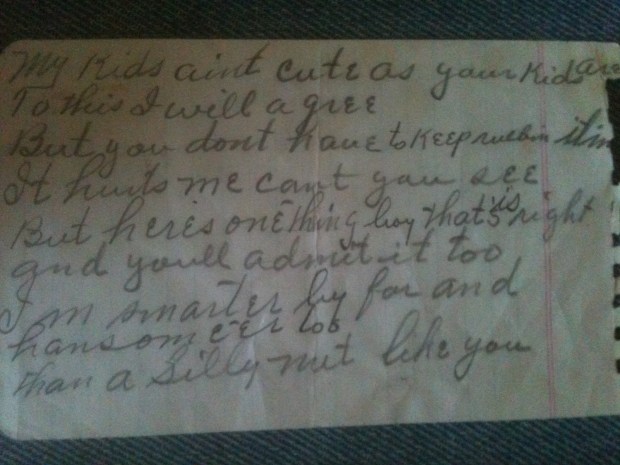 My Kids aint cute as your Kids are
To this I will agree
But you dont have to Keep rubbin it in
It hurts me cant you see
But heres one thing boy that's is right
and youll admit it too
I m smarter by far and
hansomeer too
than a Silly nut like you